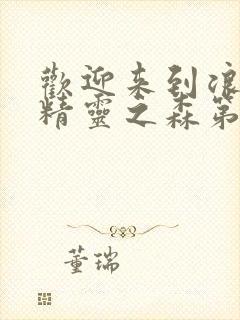 歡迎来到浪
精靈之森第
董瑞